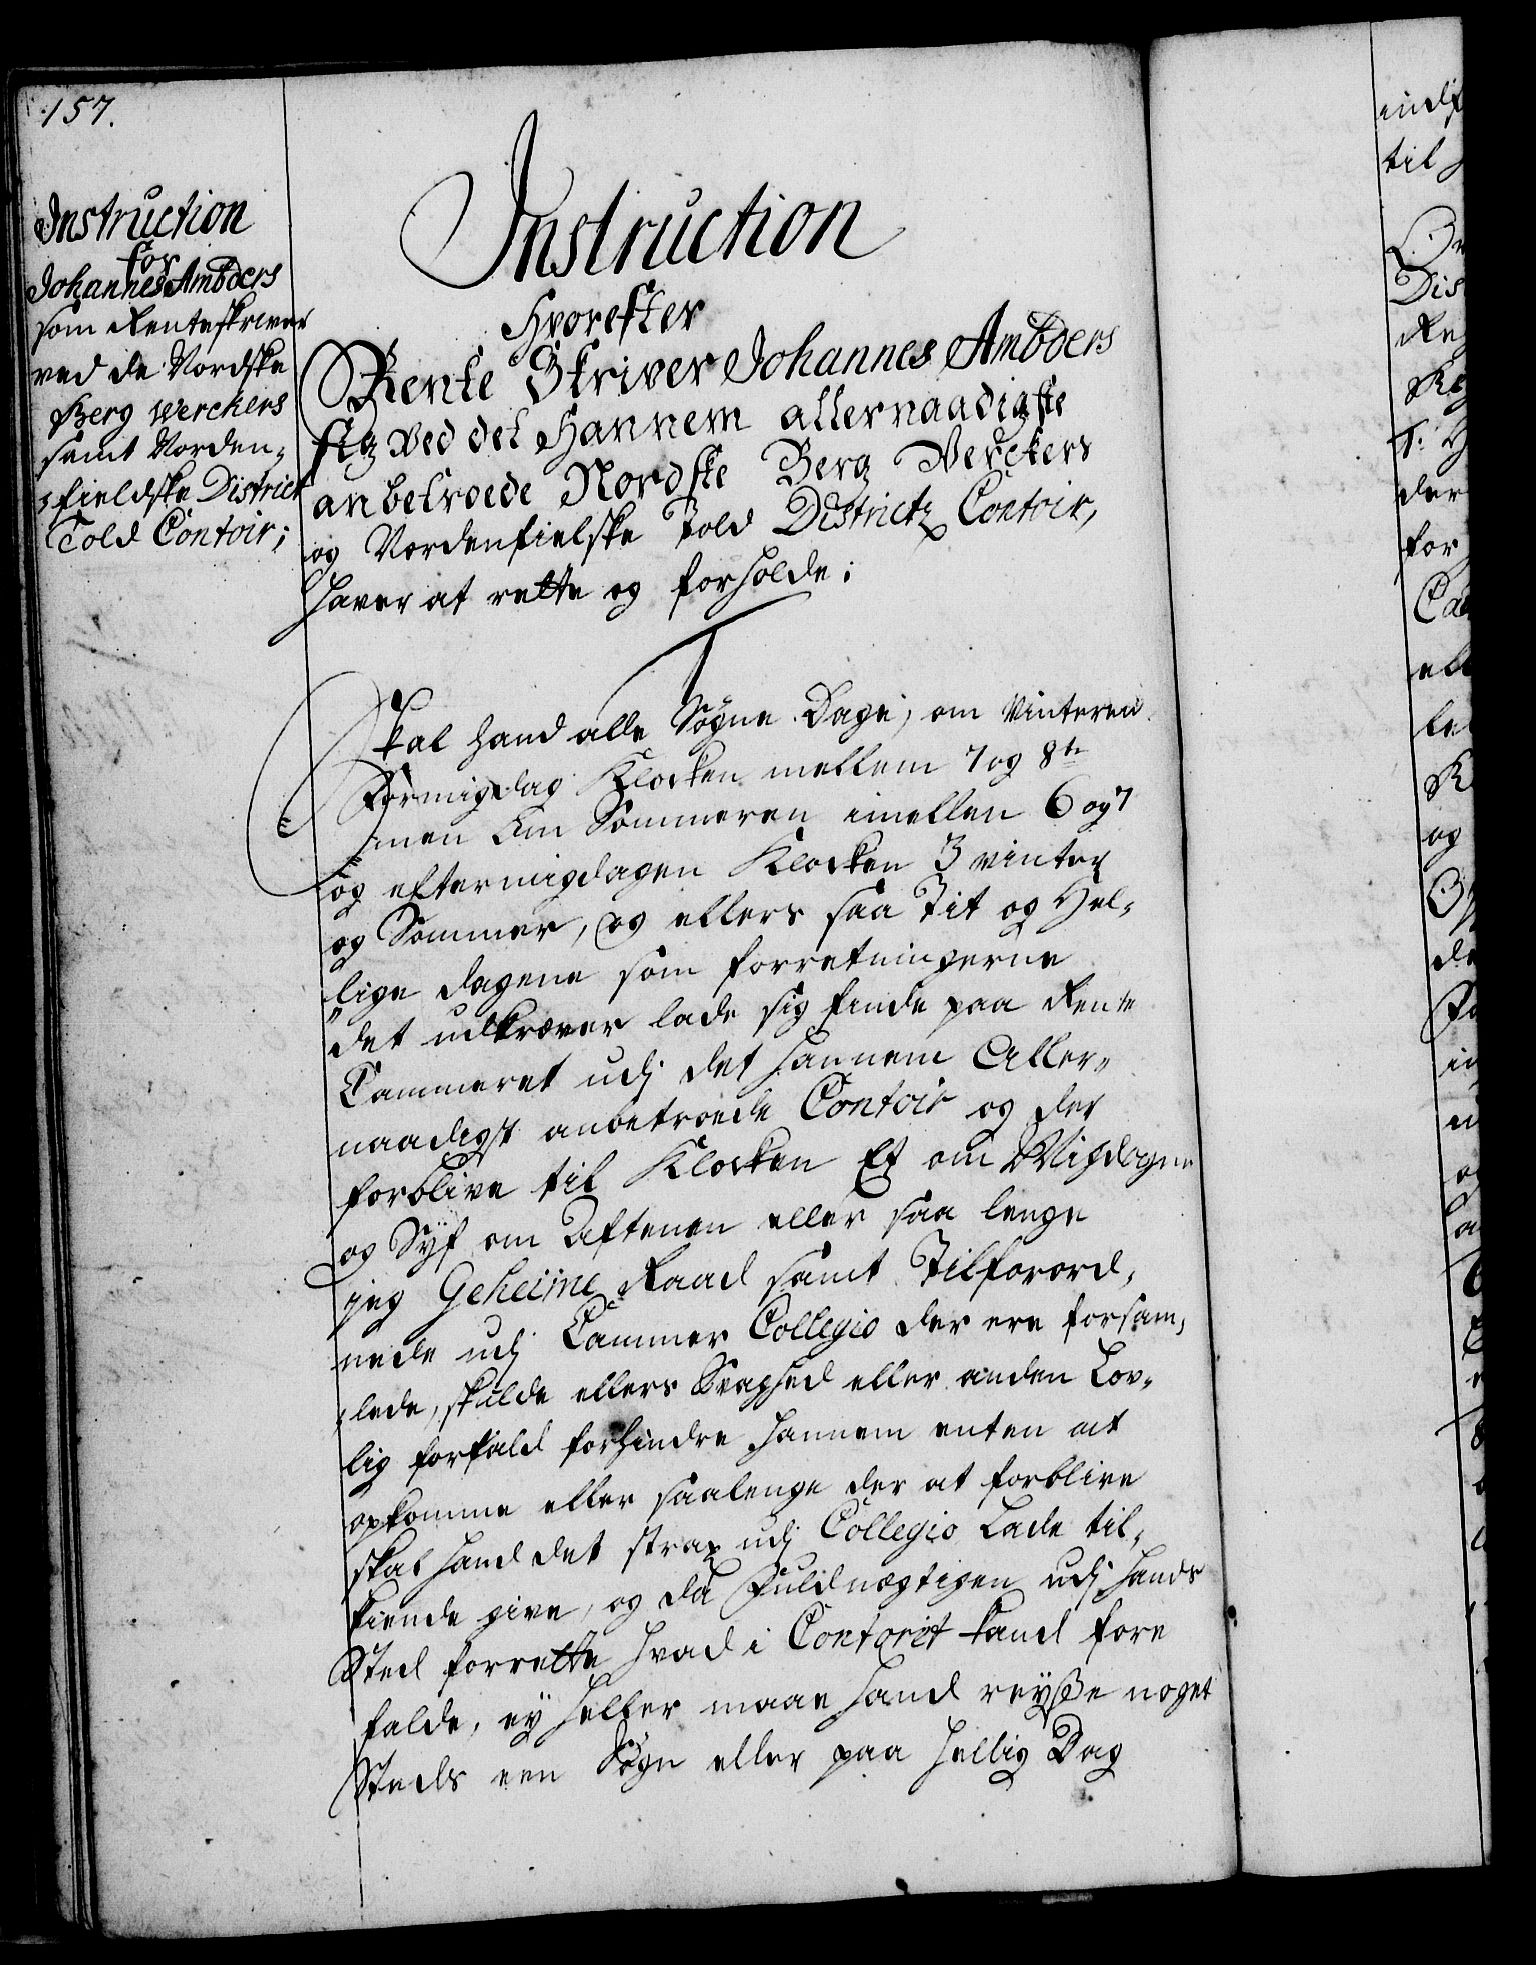 157.
Instruction
for
Johannes Ambders
som Renteskriver
ved de Nordske
Berg Werckers
samt Norden-
-fieldske District
Told Contoir;
Instruction
Hvorefter
Rente Skriver Johannes Ambders
sig ved det Hannem allernaadigste
anbetroede Nordske Berg Werckers
og Nordenfielske Told Districts Contoir,
haver at rette og forholde;
1
Skal hand alle Søgne Dage, om Vinteren
Formigdag Klocken mellem 7 og 8te
men Om Sommeren imellem 6 og 7
og eftermigdagen Klocken 3 vinter
og Sommer, og ellers saa Tit og Hel-
lige dagene som forretningerne
det udkræver lade sig finde paa Rente
Cammeret udj det hannem Aller-
naadigst anbetroede Contoir og der
forblive til Klocken Et om Migdagen
og Syf om Aftenen eller saa lenge
jeg Geheime Raad samt Tilforord-
nede udj Cammer Collegio der ere forsam-
-lede, skulde ellers Svaghed eller anden Lov-
lig forfald forhindre hannem enten at
opkomme eller saalenge der at forblive
skal hand det strax udj Collegio Lade til-
kiende give, og da Fuldmægtigen udj hands
Sted forrette hvad i Contoret kand fore
falde, ey heller maae hand reyse noget
Steds een Søgn eller paa hellig Dag